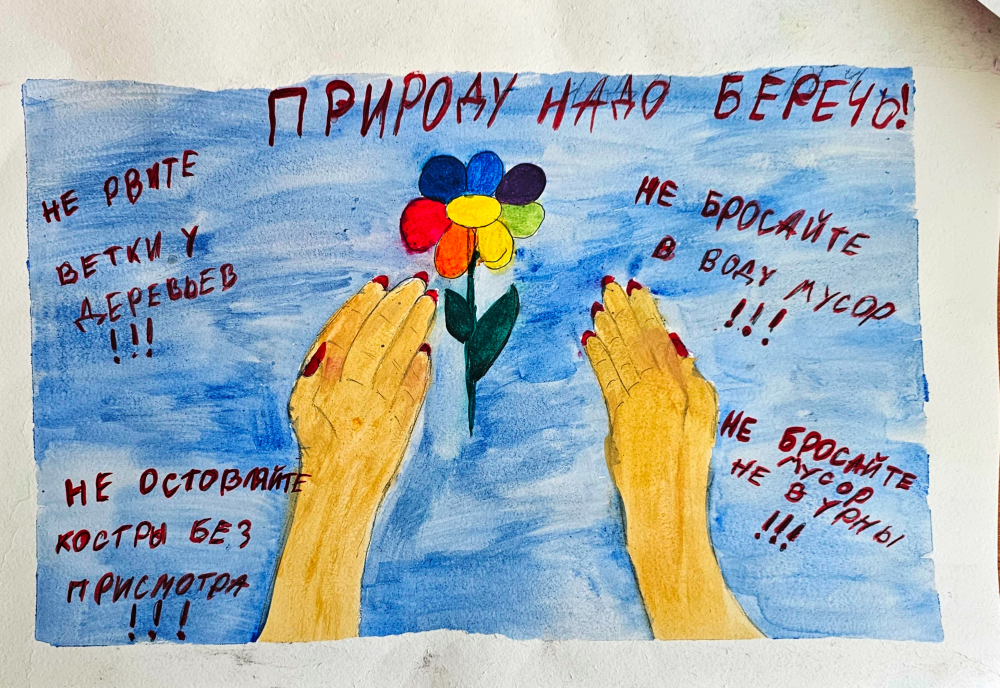 ПРИРОДУ НАДО БЕРЕЧЬ!
НЕ РВИТЕ
ВЕТКИ У
ДЕРЕВЬЕВ
!!!
НЕ БРОСАЙТЕ
В ВОДУ МУСОР
!!!
НЕ ОСТОВЛЯЙТЕ
КОСТРЫ БЕЗ
ПРИСМОТРА
!!!
НЕ БРОСАЙТЕ
МУСОР
НЕ В УРНЫ
!!!